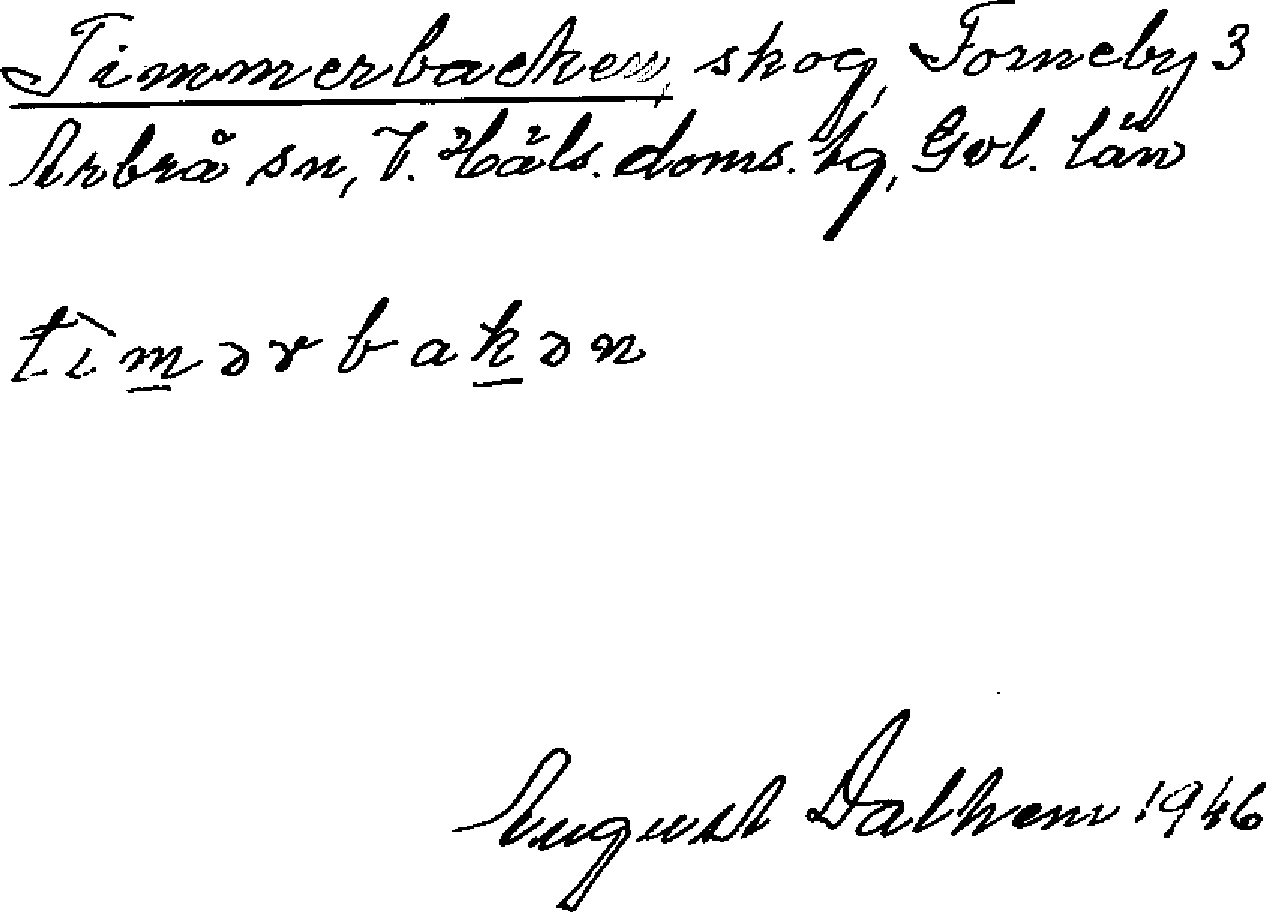 Timmerbacken, skog, Forneby 3
Arbrå sn, V. Häls. doms. tg, Gvl. län
tìm̲ərbak̲ən
August Dalhem 1946